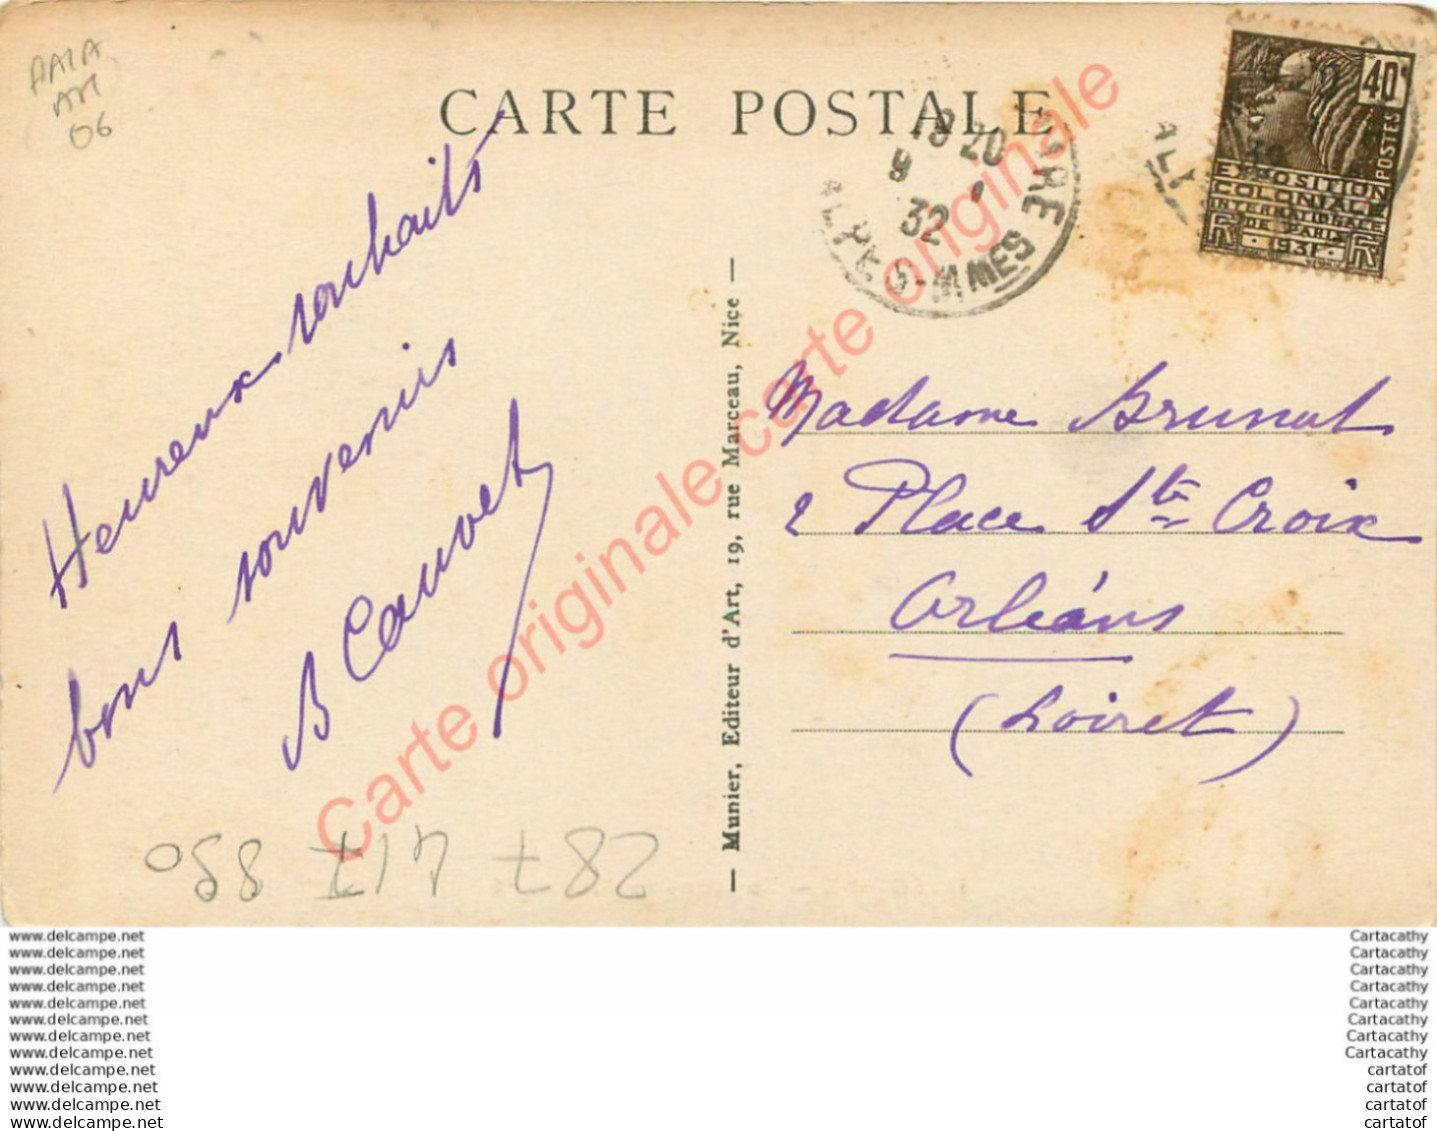 CARTE POSTALE
18 20
9 1
32
ALPES-MMES
40c
POSTES
EXPOSITION
COLONIALE
INTERNATIONALE
DE PARIS
R 1931 F
Heureux souhaits
bons souvenirs
B Cauvet
— Munier, Editeur d'Art, 19, rue Marceau, Nice —
Madame Brunat
2 Place Ste Croix
Orléans
(Loiret)
06
287 417 890
Carte originale carte originale
www.delcampe.net
www.delcampe.net
www.delcampe.net
www.delcampe.net
www.delcampe.net
www.delcampe.net
www.delcampe.net
www.delcampe.net
www.delcampe.net
www.delcampe.net
www.delcampe.net
www.delcampe.net
Cartacathy
Cartacathy
Cartacathy
Cartacathy
Cartacathy
Cartacathy
Cartacathy
Cartacathy
cartatof
cartatof
cartatof
cartatof